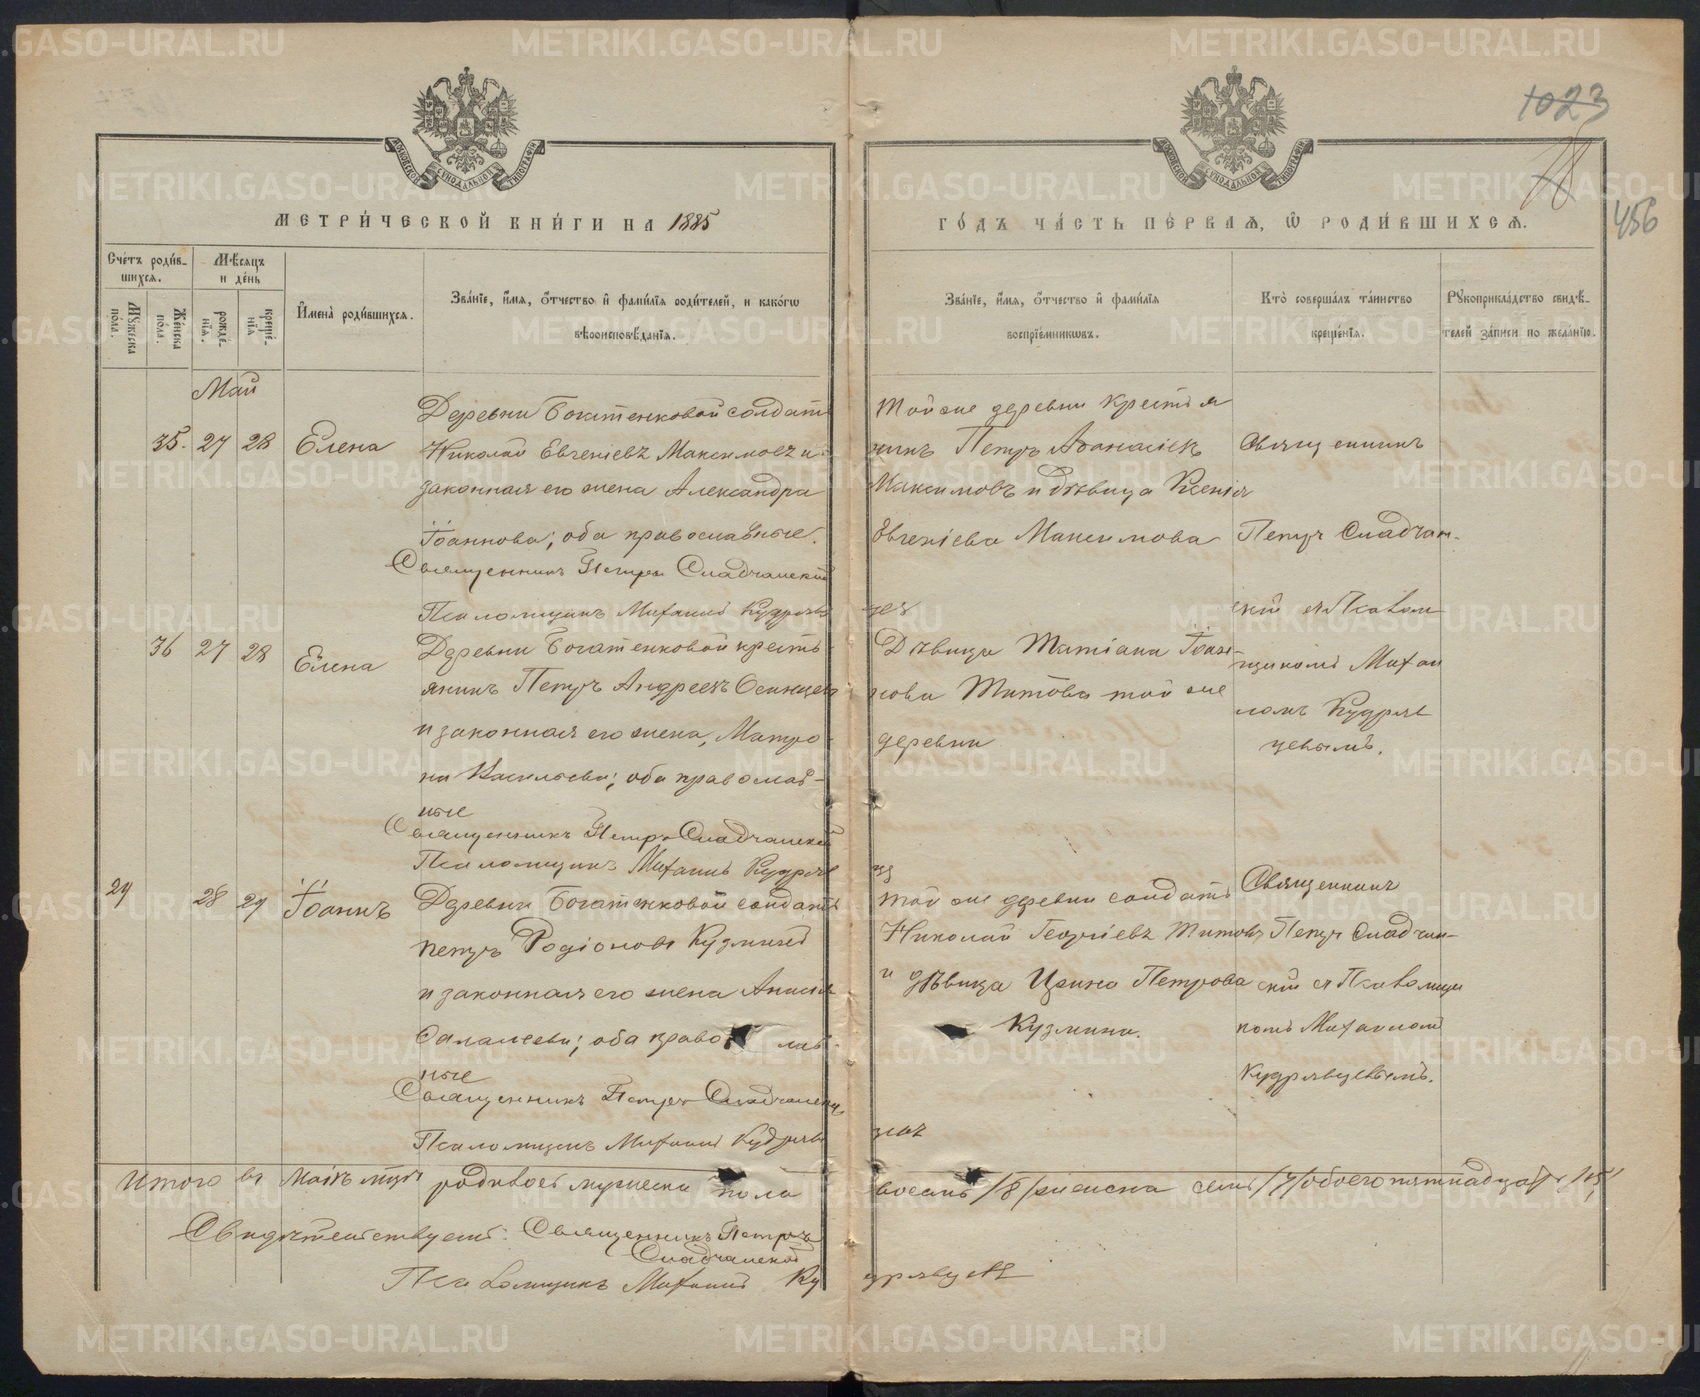 1023
456
МЕТРИ́ЧЕСКОЙ КНИ́ГИ НА 1885
ГО́ДЪ ЧА́СТЬ ПЕ́РВАЯ, Ѡ РОДИ́ВШИХСЯ.
Сче́тъ роди́в-
шихся.
Мѣ́сяцъ
и де́нь
Му́жеска по́ла.
Же́нска по́ла.
рожде́-
нїя.
креще́-
нїя
Имена̀ роди́вшихся.
Зва́нїе, и́мя, о́тчество и фами́лїя роди́телей, и како́гѡ
вѣроисповѣ́данїя.
Зва́нїе, и́мя, о́тчество и фами́лїя
воспрїе́мникѡвъ.
Кто̀ соверша́лъ та́инство
креще́нїя.
Рꙋкоприкла́дство свидѣ́-
телей за́писи по жела́нїю.
Май
35. 27 28 Елена
Деревни Богатенковой солдатъ
Николай Евгеніевъ Максимовъ и
законная его жена Александра
Іоаннова; оба православные.
Священникъ Петръ
Псаломщикъ Михаилъ Кудрявцевъ
Той же деревни крестья
нинъ Петръ Аѳанасіевъ
Максимовъ и дѣвица Ксенія
Евгеніева Максимова
Священникъ
Петръ
скій съ Псалом
щикомъ Михаи
ломъ Кудряв
цевымъ.
36 27 28 Елена
Деревни Богатенковой кресть
янинъ Петръ Андреевъ
и законная его жена, Матро
на Васильева; оба православ-
ные
Священникъ Петръ
Псаломщикъ Михаилъ Кудрявцевъ
Дѣвица Татіана Іоан-
нова Титова той же
деревни
29 28 29 Іоаннъ
Деревни Богатенковой солдатъ
Петръ Родіоновъ Кузминъ
и законная его жена
оба православ-
ные
Священникъ Петръ
Псаломщикъ Михаилъ Кудрявцевъ
Той же деревни солдатъ
Николай Георгіевъ Титовъ
и дѣвица Ирина Петрова
Кузмина.
Священникъ
Петръ
скій съ Псаломщи
комъ Михаиломъ
Кудрявцевымъ.
Итого въ Маѣ мцѣ родилось мужеска пола восемь /8/ женска семь /7/ обоего пятнадцать /15/
Свидѣтельствуетъ: Священникъ Петръ
Псаломщикъ Михаилъ Кудрявцевъ
METRIKI.GASO-URAL.RU